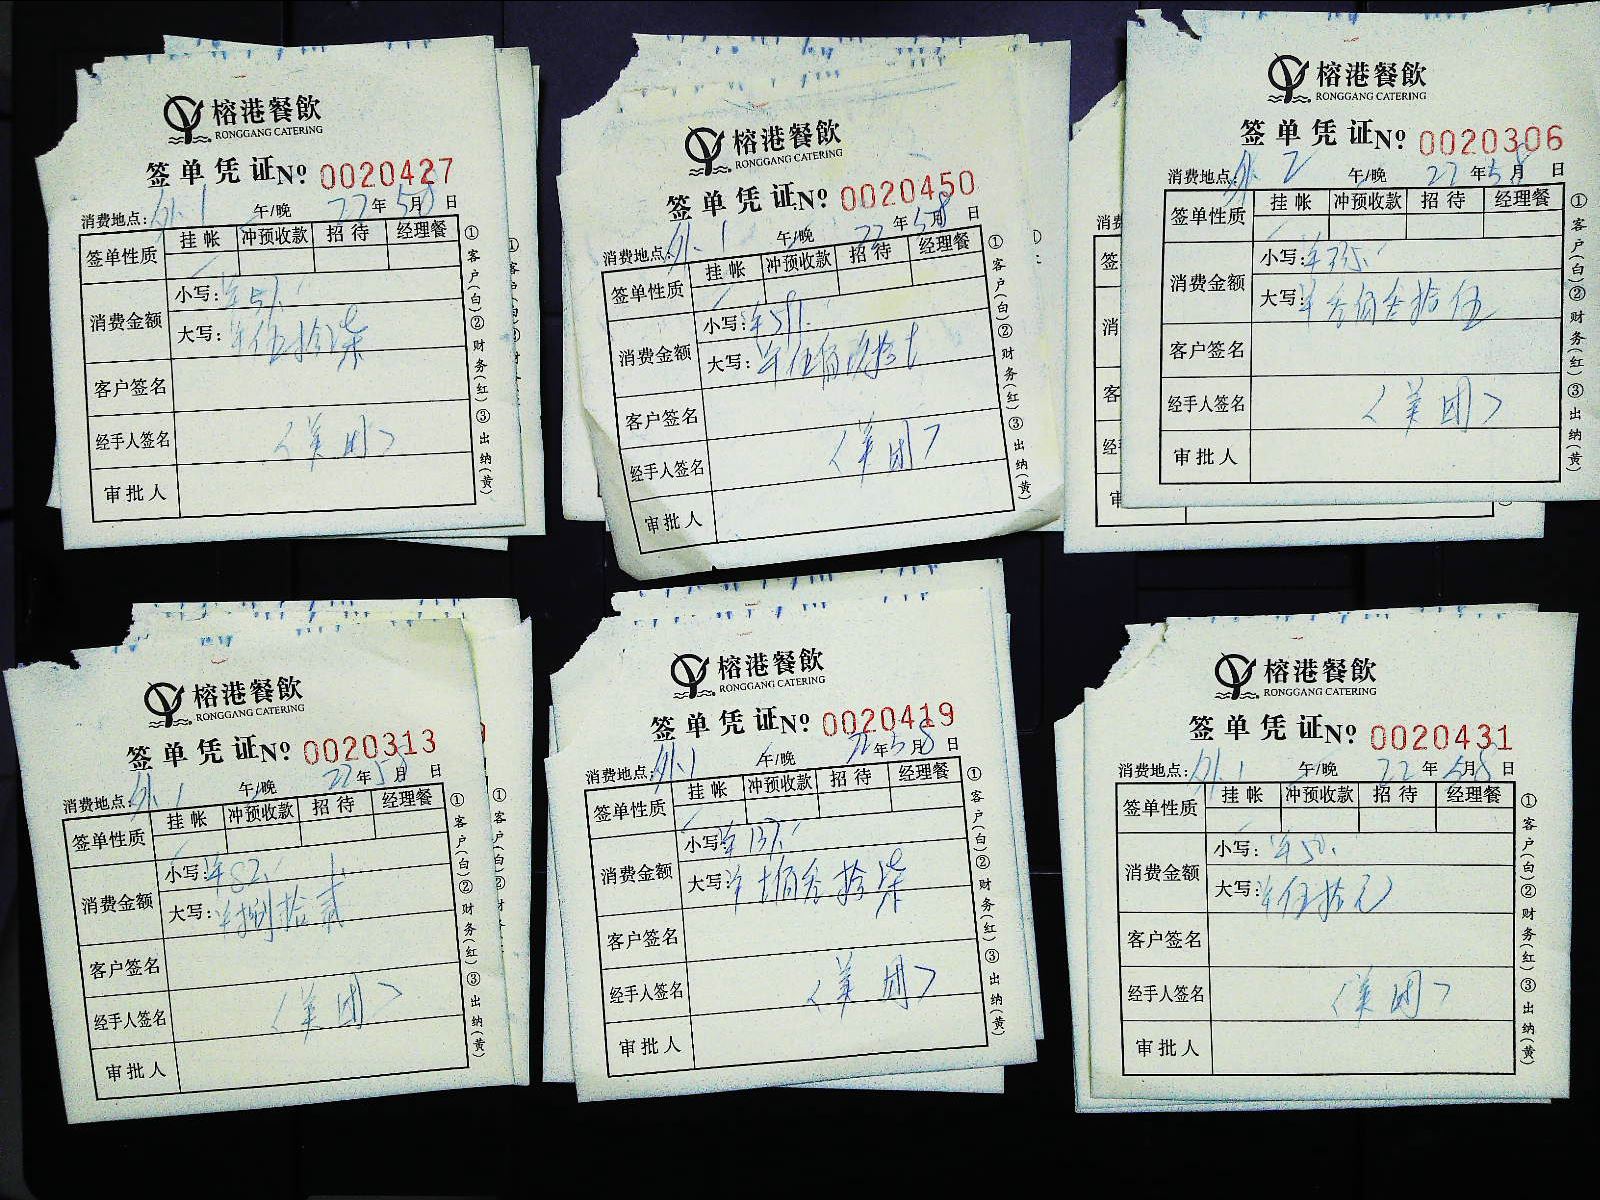 榕港餐飲
RONGGANG CATERING
签单凭证№ 0020427
消费地点: 外1 午/晚 22年5月8日
签单性质 挂帐 冲预收款 招待 经理餐
消费金额 小写:¥57.
大写:¥伍拾柒
客户签名
经手人签名 <美团>
审批人
①客户(白)②财务(红)③出纳(黄)
榕港餐飲
RONGGANG CATERING
签单凭证№ 0020450
消费地点: 外1 午/晚 22年5月8日
签单性质 挂帐 冲预收款 招待 经理餐
消费金额 小写:¥591.
大写:¥伍佰玖拾
客户签名
经手人签名 <美团>
审批人
①客户(白)②财务(红)③出纳(黄)
榕港餐飲
RONGGANG CATERING
签单凭证№ 0020306
消费地点: 外2 午/晚 22年5月8日
签单性质 挂帐 冲预收款 招待 经理餐
消费金额 小写:¥335.
大写:¥叁佰叁拾伍
客户签名
经手人签名 <美团>
审批人
①客户(白)②财务(红)③出纳(黄)
榕港餐飲
RONGGANG CATERING
签单凭证№ 0020313
消费地点: 外1 午/晚 22年5月8日
签单性质 挂帐 冲预收款 招待 经理餐
消费金额 小写:¥82.
大写:¥捌拾贰
客户签名
经手人签名 <美团>
审批人
①客户(白)②财务(红)③出纳(黄)
榕港餐飲
RONGGANG CATERING
签单凭证№ 0020419
消费地点: 外1 午/晚 22年5月8日
签单性质 挂帐 冲预收款 招待 经理餐
消费金额 小写:¥137.
大写:¥壹佰叁拾柒
客户签名
经手人签名 <美团>
审批人
①客户(白)②财务(红)③出纳(黄)
榕港餐飲
RONGGANG CATERING
签单凭证№ 0020431
消费地点: 外1 午/晚 22年5月8日
签单性质 挂帐 冲预收款 招待 经理餐
消费金额 小写:¥50.
大写:¥伍拾元
客户签名
经手人签名 <美团>
审批人
①客户(白)②财务(红)③出纳(黄)